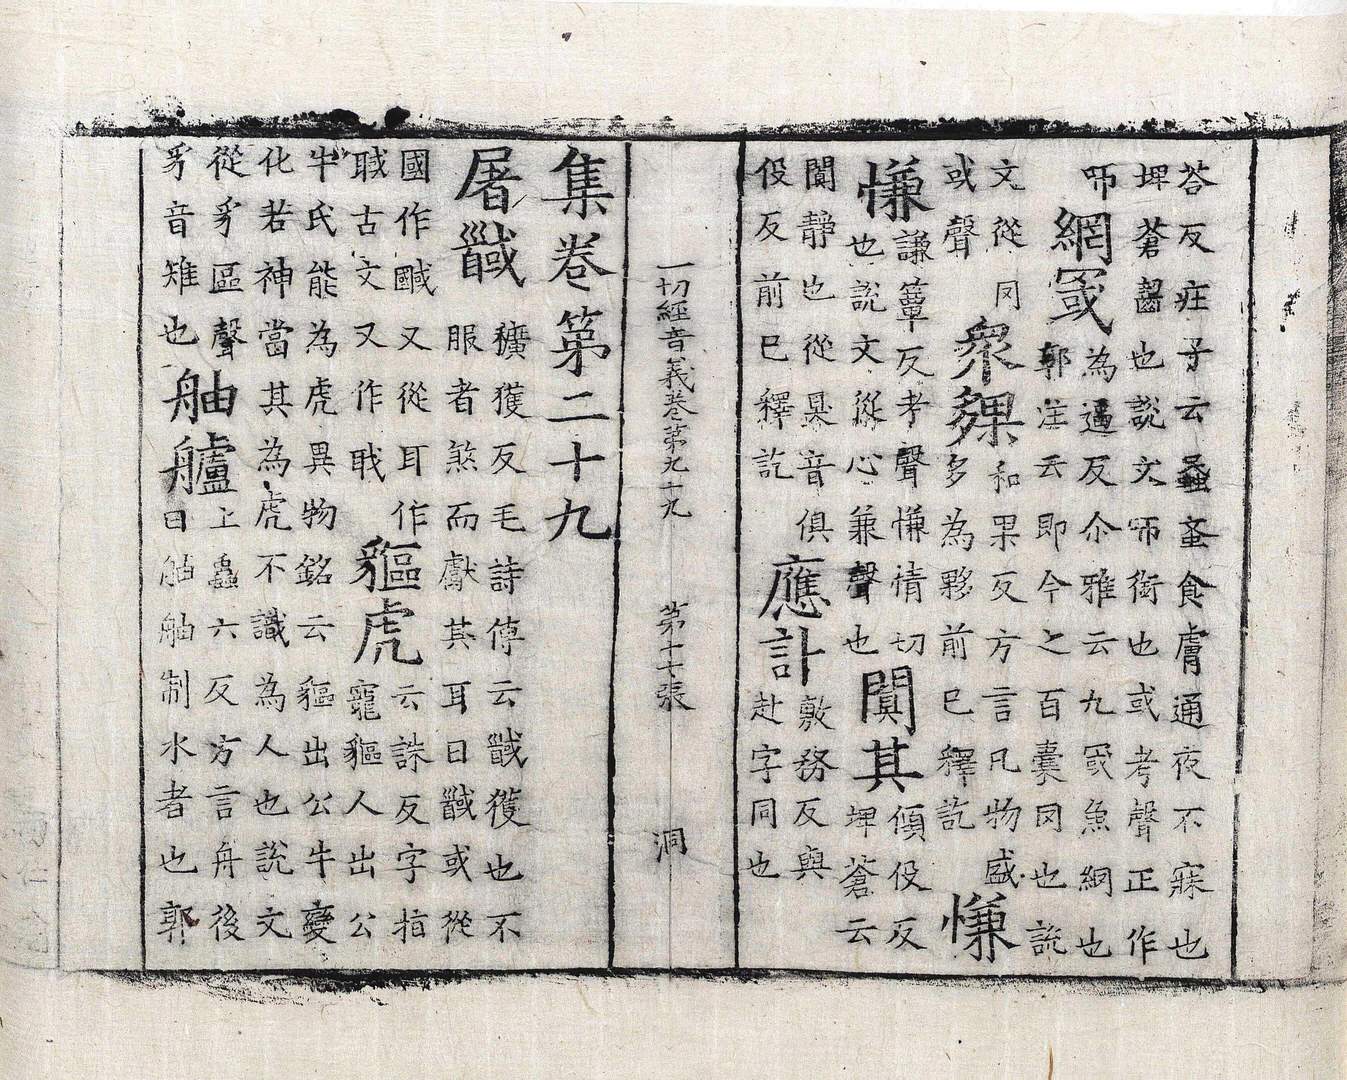 荅反疰子云蝱蚤食膚通夜不寐也
埤蒼齧也說文㕞銜也或考聲正作
㕞網罭為逼反尒雅云九罭魚網也
郭注云即今之百囊罔也說
文從罔衆夥和果反方言凡物盛
或聲多為夥前已釋訖慊
慊謙簟反考聲慊情切
也說文從心兼聲也闃其傾伇反
埤蒼云
闃靜也從狊音俱應訃敷務反與
伇反前已釋訖赴字同也
一切經音義卷第九十九 第十七張 洞
集卷第二十九
屠馘獷獲反毛詩傳云馘獲也不
服者煞而獻其耳曰馘或從
國作㖪又從耳作貙虎云誅反字指
聝古文又作戝竉貙人出公
牛氏能為虎異物銘云貙出公牛變
化若神當其為虎不識為人也說文
從豸區聲舳艫上蟲六反方言舟後
豸音雉也曰舳舳制水者也郭